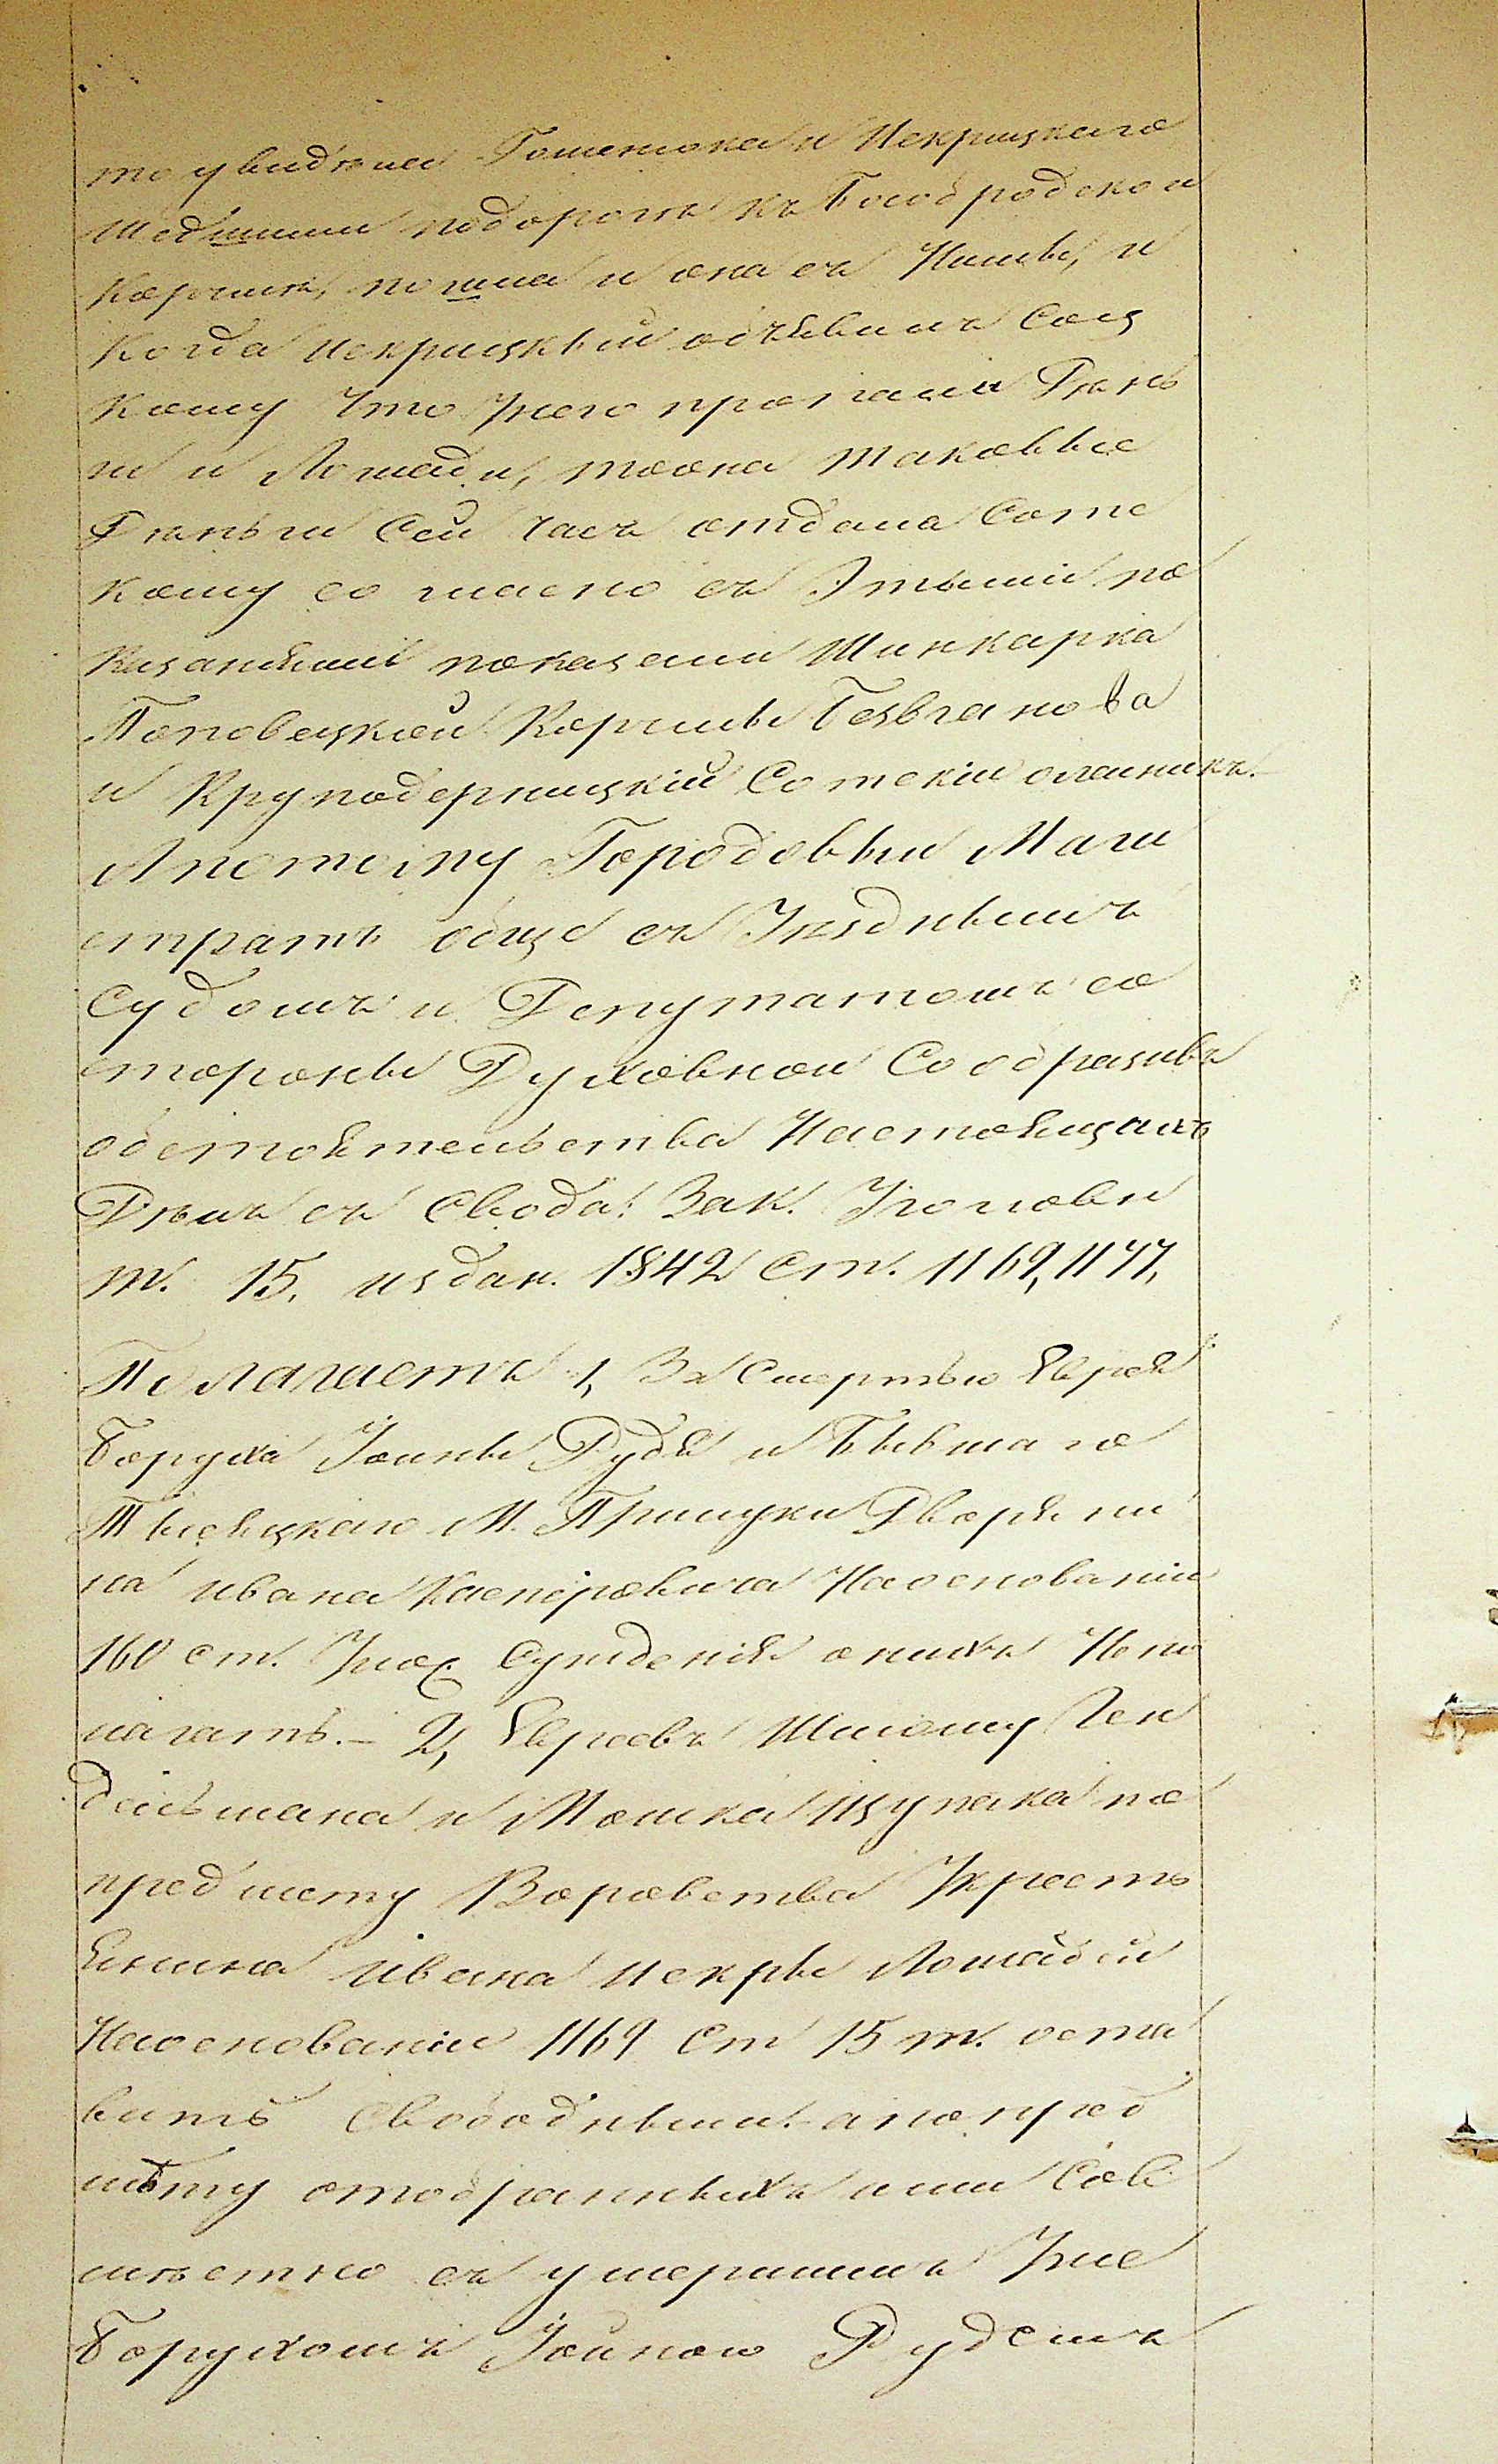 то увидѣла Гошенюка и Искрицкаго
шедшими подорогѣ къ Богородской
Корчмѣ, пошла и она съ Ними, и
Когда Искрицкый объявилъ Соц
кому Что Унего пропали Дѣнь
ги и Лошади, то она таковые
Дѣньги Сей часъ отдала Сотс
кому со гласно съ Этыми по
казаніями показали Шинкарка
Поповецкой Корчмы
и Круподерницкій Сотскій олейникъ.
А потому Городовый Маги
стратъ обще съ Уѣзднымъ
Судомъ и Депутатомъ со
стороны Духовной Сообразивъ
обстоятельства Настоящаго
Дѣла съ Свода: Зак. Уголовн
т. 15, издан. 1842 Ст. 1169, 1177,
Полагаетъ 1, За Смертью Еврея
Боруха Іойны Рудя и Бывшаго
М. Дворяни
на Ивана Касперовича Наосновании
160 ст. Улож. Сужденія онихъ Непо
лагать. – 2, Евреевъ Шлёму Ген
дельмана и Мошка Цупака по
предмету Воровства Укресть
янина Ивана Искры Лошадей
Наосновании 1169 Ст 15 т. оста
вить Свободными. – а попред
мѣту отобранныхъ ими Сов
мѣстно съ умершимъ Уже
Борухомъ Іойною Рудемъ